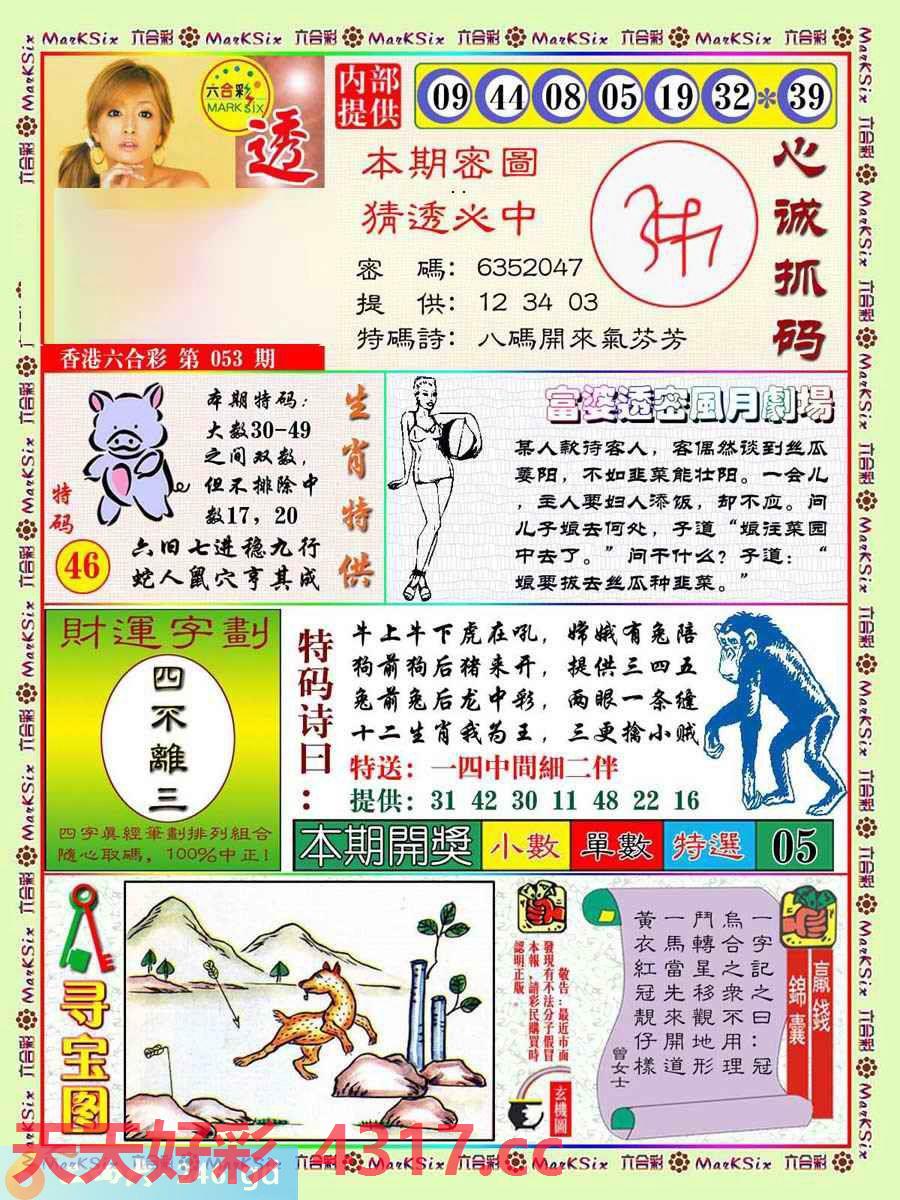 MarKSix 六合彩 MarKSix 六合彩 MarKSix 六合彩 MarKSix 六合彩 MarKSix 六合彩
六合彩
MARK SIX
透
内部
提供
09 44 08 05 19 32 * 39
本期密圖
猜透必中
密 碼: 6352047
提 供: 12 34 03
特碼詩: 八碼開來氣芬芳
心诚抓码
香港六合彩 第 053 期
本期特码:
大数30-49
之间双数,
但不排除中
数17, 20
特码
46
六旧七进稳九行
蛇人鼠穴亨其成
生肖特供
富婆透密風月劇場
某人款待客人, 客偶然谈到丝瓜
萎阳, 不如韭菜能壮阳。一会儿
, 主人要妇人添饭, 却不应。问
儿子娘去何处, 子道“娘往菜园
中去了。”问干什么? 子道: “
娘要拔去丝瓜种韭菜。”
財運字劃
四不離三
四字真經筆劃排列組合
隨心取碼, 100%中正!
特码诗曰:
牛上牛下虎在吼, 嫦娥有兔陪
狗前狗后猪来开, 提供三四五
兔前兔后龙中彩, 两眼一条缝
十二生肖我为王, 三更擒小贼
特送: 一四中間細二伴
提供: 31 42 30 11 48 22 16
本期開獎 小數 單數 特選 05
寻宝图
敬告:最近市面
發現有不法分子假冒
本報,請彩民購買時
認明正版。
玄機圖
一字記之曰:冠
烏合之衆不用理
鬥轉星移觀地形
一馬當先來開道
黃衣紅冠靚仔樣
曾女士
贏錢
錦囊
天天好彩 4317.cc
MarKSix 六合彩 MarKSix 六合彩 MarKSix 六合彩